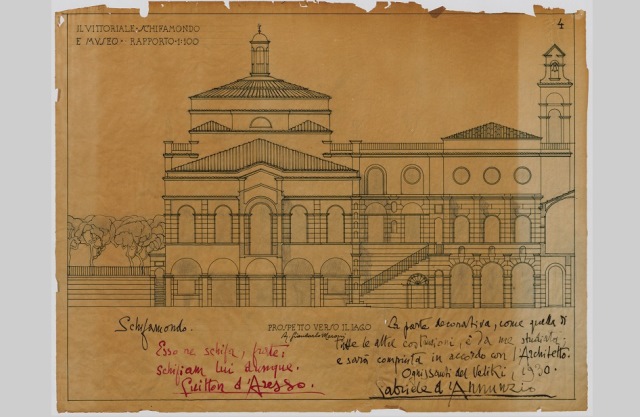 IL VITTORIALE · SCHIFAMONDO
E MVSEO · RAPPORTO · 1:100
4
PROSPETTO VERSO IL LAGO
Schifamondo.
Esso ne schifa, frate:
schifiam lui dunque.
Guitton d'Arezzo.
La parte decorativa, come quella di
tutte le altre costruzioni, è da me studiata;
e sarà compiuta in accordo con l'Architetto.
Ognissanti del 1930.
Gabriele d'Annunzio